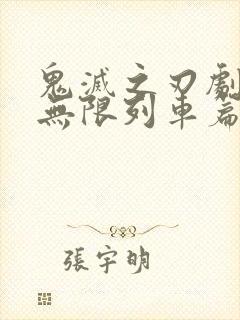 鬼滅之刃劇
無限列車篇
張宇明